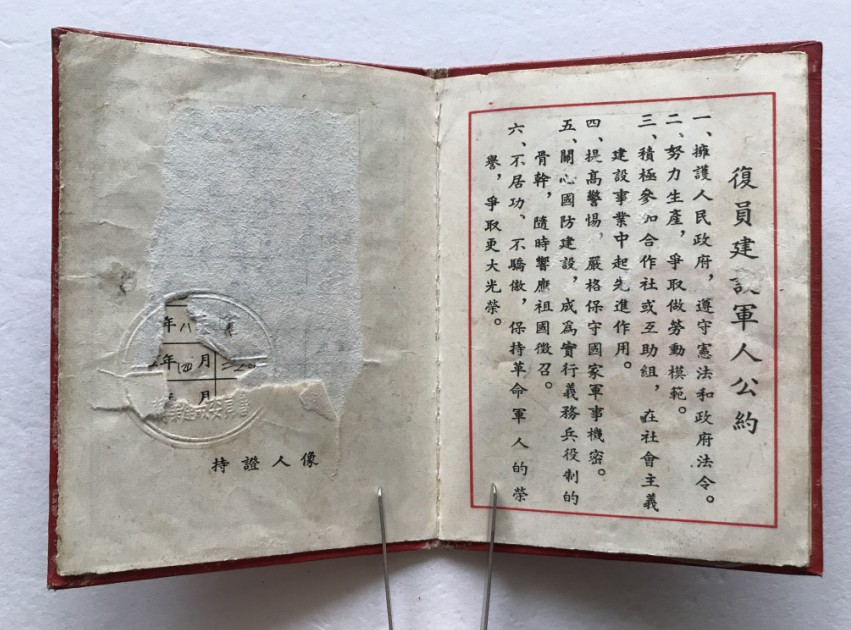 復員建設軍人公約
一、擁護人民政府，遵守憲法和政府法令。
二、努力生產，爭取做勞動模範。
三、積極參加合作社或互助組，在社會主義
建設事業中起先進作用。
四、提高警惕，嚴格保守國家軍事機密。
五、關心國防建設，成為實行義務兵役制的
骨幹，隨時響應祖國徵召。
六、不居功、不驕傲，保持革命軍人的榮
譽，爭取更大光榮。
年八
年 月
月
持證人像